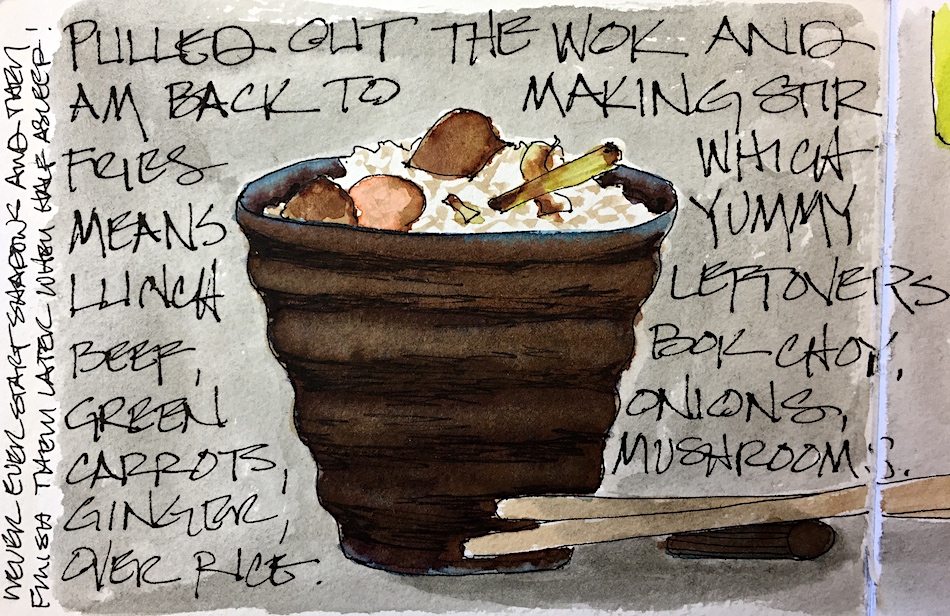 PULLED OUT THE WOK AND
AM BACK TO MAKING STIR
FRIES WHICH
MEANS YUMMY
LUNCH LEFTOVERS
BEEF, BOK CHOY,
GREEN ONIONS,
CARROTS, MUSHROOMS.
GINGER,
OVER RICE.
NEVER EVER START SHADOWS AND THEN
FINISH THEM LATER WHEN HALF ASLEEP!